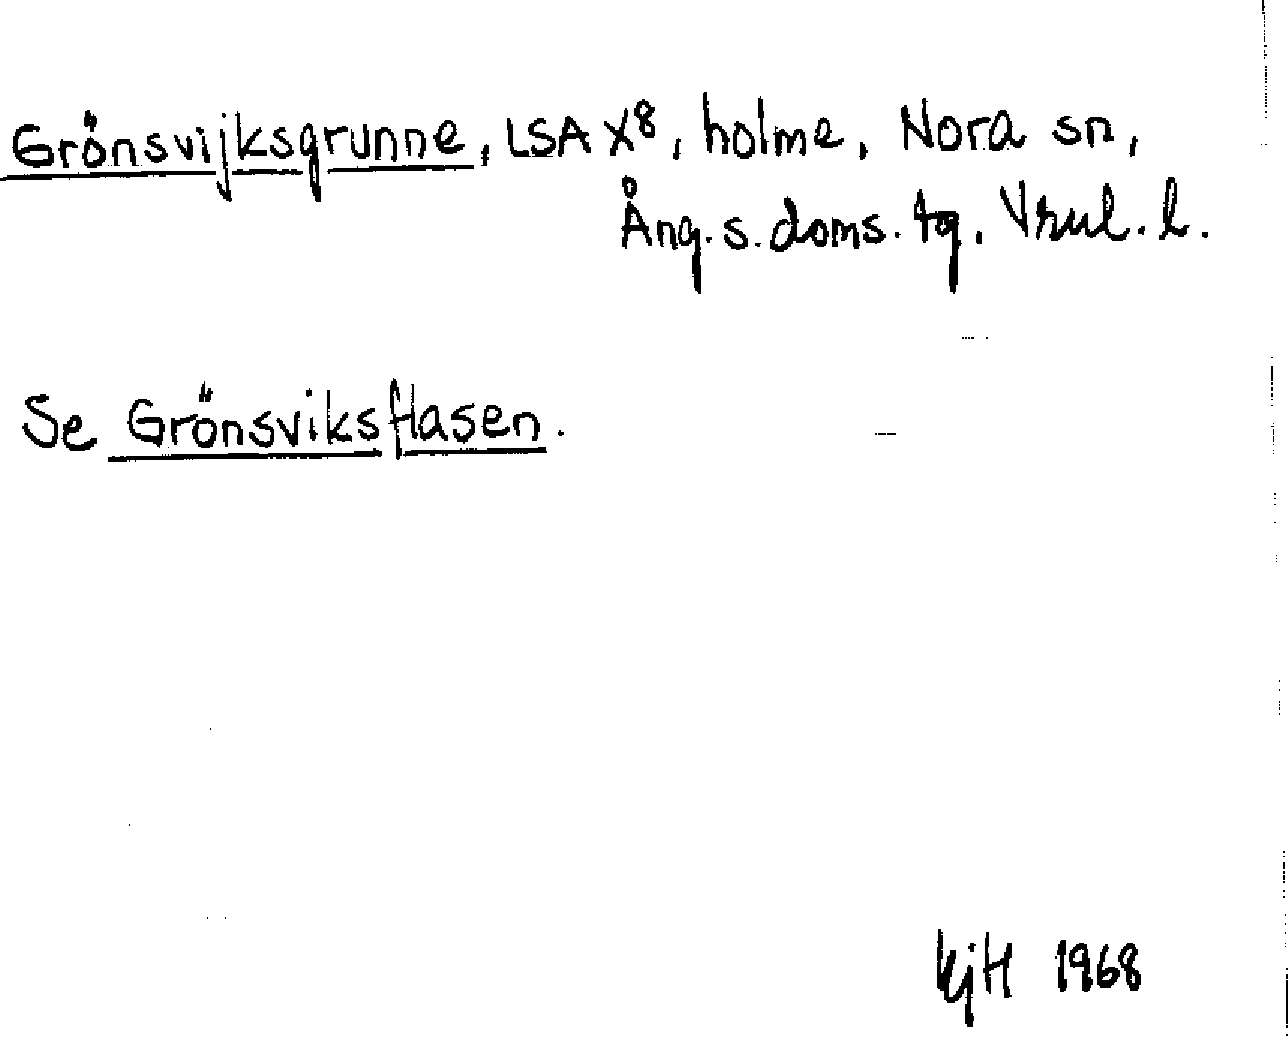 Grönsvijksgrunne, LSA X8, holme, Nora sn,
Ång. s. doms. tg. Vnul. l.
Se Grönsviksflasen.
KjH 1968